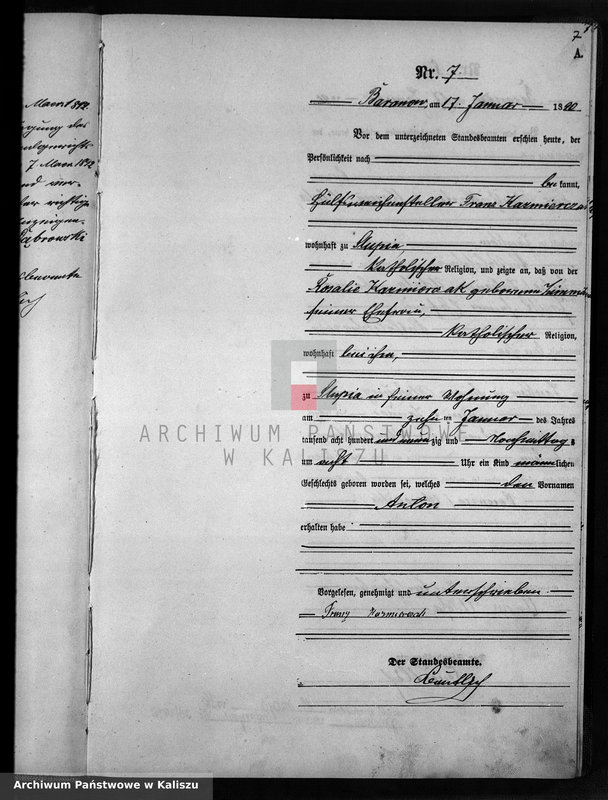 7
A.
Nr. 7
Baranow, am 17. Januar 1890
Vor dem unterzeichneten Standesbeamten erschien heute, der
Persönlichkeit nach
bekannt,
Hülfsweichensteller Franz Kazmierczak
wohnhaft zu Slupia
katholischer Religion, und zeigte an, daß von der
Rosalie Kazmierczak geborenen
seiner Ehefrau,
katholischer Religion,
wohnhaft bei ihm,
zu Slupia in seiner Wohnung
am zehnten Januar des Jahres
tausend acht hundert und neunzig und Nachmittags
um acht Uhr ein Kind männlichen
Geschlechts geboren worden sei, welches den Vornamen
Anton
erhalten habe
Vorgelesen, genehmigt und unterschrieben
Franz
Der Standesbeamte.
7 Maerz 1892
ARCHIWUM PAŃSTWOWE
W KALISZU
Archiwum Państwowe w Kaliszu